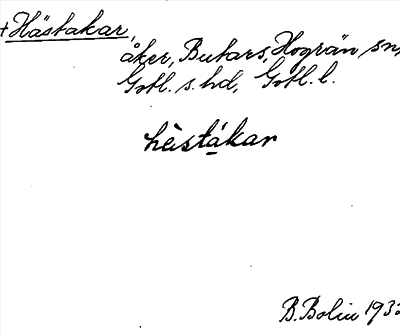 +Hästakar,
åker, Butars, Hogrän sn,
Gotl. s. hd, Gotl. l.
hästákar
B. Bolin 1932